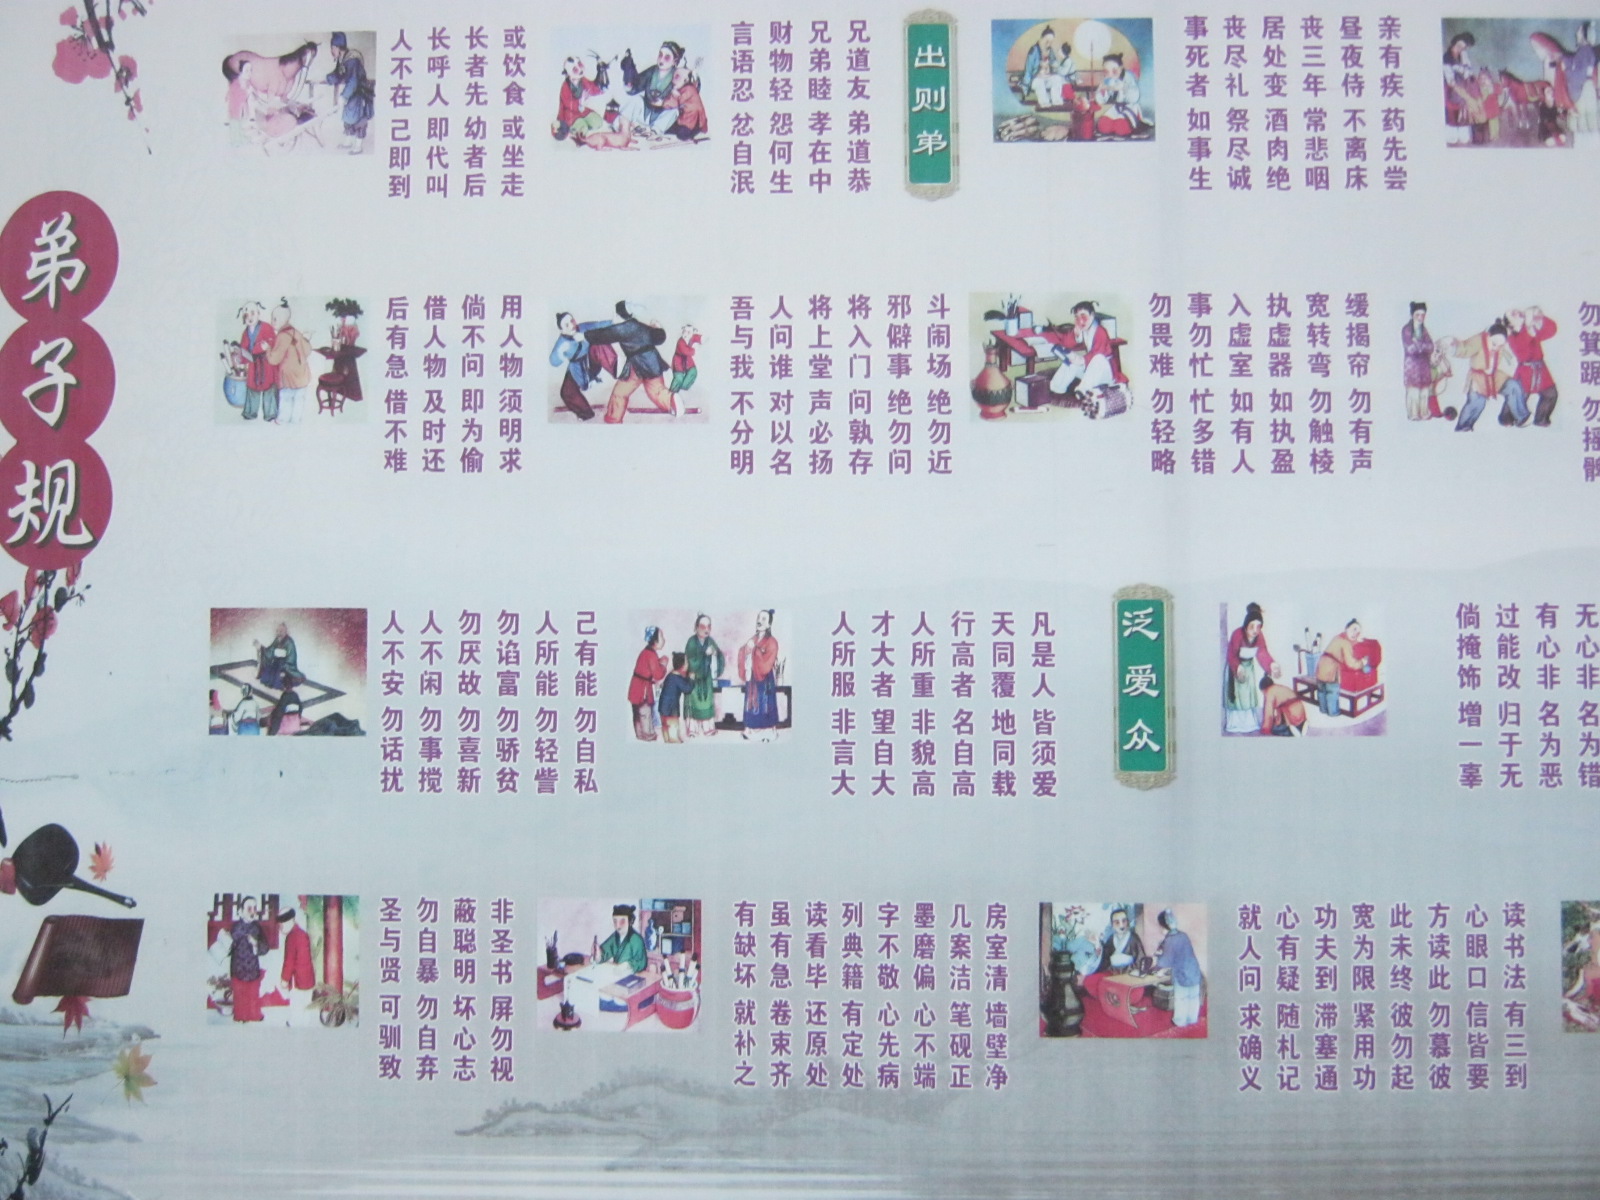 弟子规
亲有疾 药先尝
昼夜侍 不离床
丧三年 常悲咽
居处变 酒肉绝
丧尽礼 祭尽诚
事死者 如事生
出则弟
兄道友 弟道恭
兄弟睦 孝在中
财物轻 怨何生
言语忍 忿自泯
或饮食 或坐走
长者先 幼者后
长呼人 即代叫
人不在 己即到
勿箕踞 勿摇髀
缓揭帘 勿有声
宽转弯 勿触棱
执虚器 如执盈
入虚室 如有人
事勿忙 忙多错
勿畏难 勿轻略
斗闹场 绝勿近
邪僻事 绝勿问
将入门 问孰存
将上堂 声必扬
人问谁 对以名
吾与我 不分明
用人物 须明求
倘不问 即为偷
借人物 及时还
后有急 借不难
无心非 名为错
有心非 名为恶
过能改 归于无
倘掩饰 增一辜
泛爱众
凡是人 皆须爱
天同覆 地同载
行高者 名自高
人所重 非貌高
才大者 望自大
人所服 非言大
己有能 勿自私
人所能 勿轻訾
勿谄富 勿骄贫
勿厌故 勿喜新
人不闲 勿事搅
人不安 勿话扰
读书法 有三到
心眼口 信皆要
方读此 勿慕彼
此未终 彼勿起
宽为限 紧用功
功夫到 滞塞通
心有疑 随札记
就人问 求确义
房室清 墙壁净
几案洁 笔砚正
墨磨偏 心不端
字不敬 心先病
列典籍 有定处
读看毕 还原处
虽有急 卷束齐
有缺坏 就补之
非圣书 屏勿视
蔽聪明 坏心志
勿自暴 勿自弃
圣与贤 可驯致